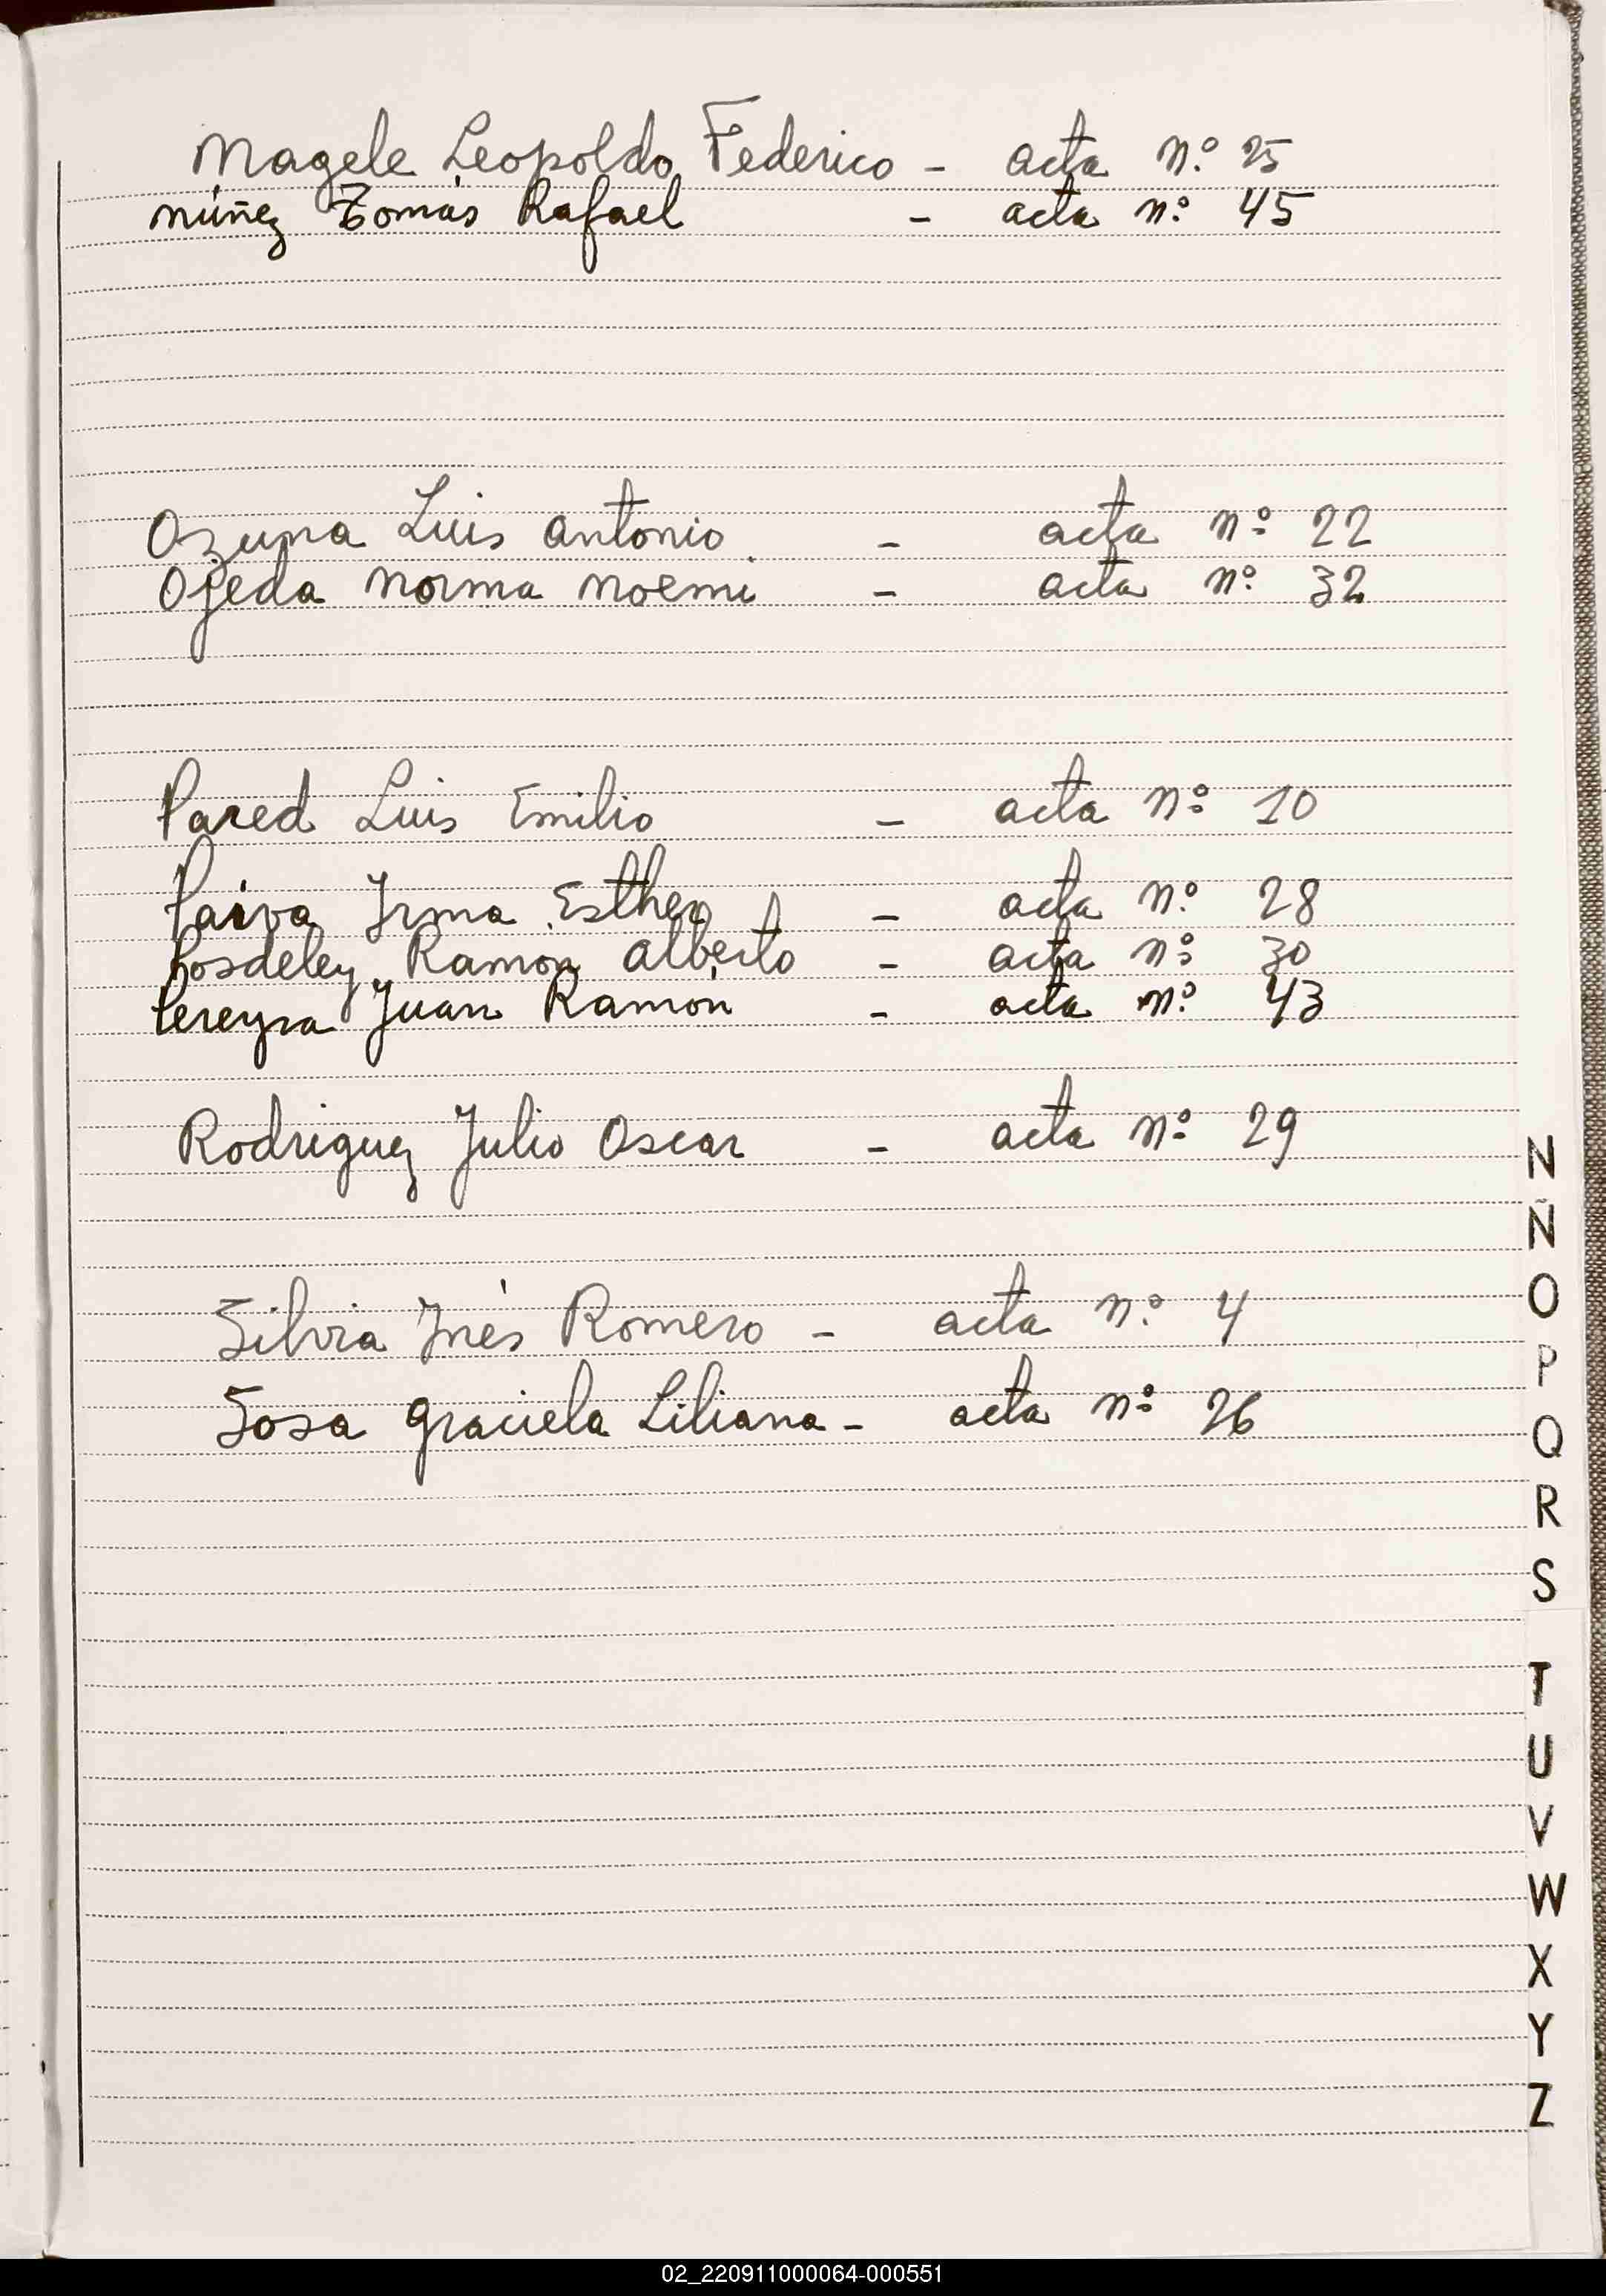 Nagele Leopoldo Federico - acta n.º 25
Núñez Tomás Rafael - acta n.º 45
Ozuna Luis Antonio. - acta n.º 22
Ojeda Norma Noemi - acta n.º 32
Pared Luis Emilio - acta n.º 10
Paiva Irma Esther - acta n.º 28
Posdeley Ramón Alberto - acta n.º 30
Pereyra Juan Ramón - acta n.º 43
Rodriguez Julio Oscar - acta n.º 29
Silvia Inés Romero - acta n.º 4
Sosa Graciela Liliana - acta n.º 26
N
Ñ
O
P
Q
R
S
T
U
V
W
X
Y
Z
02_220911000064-000551